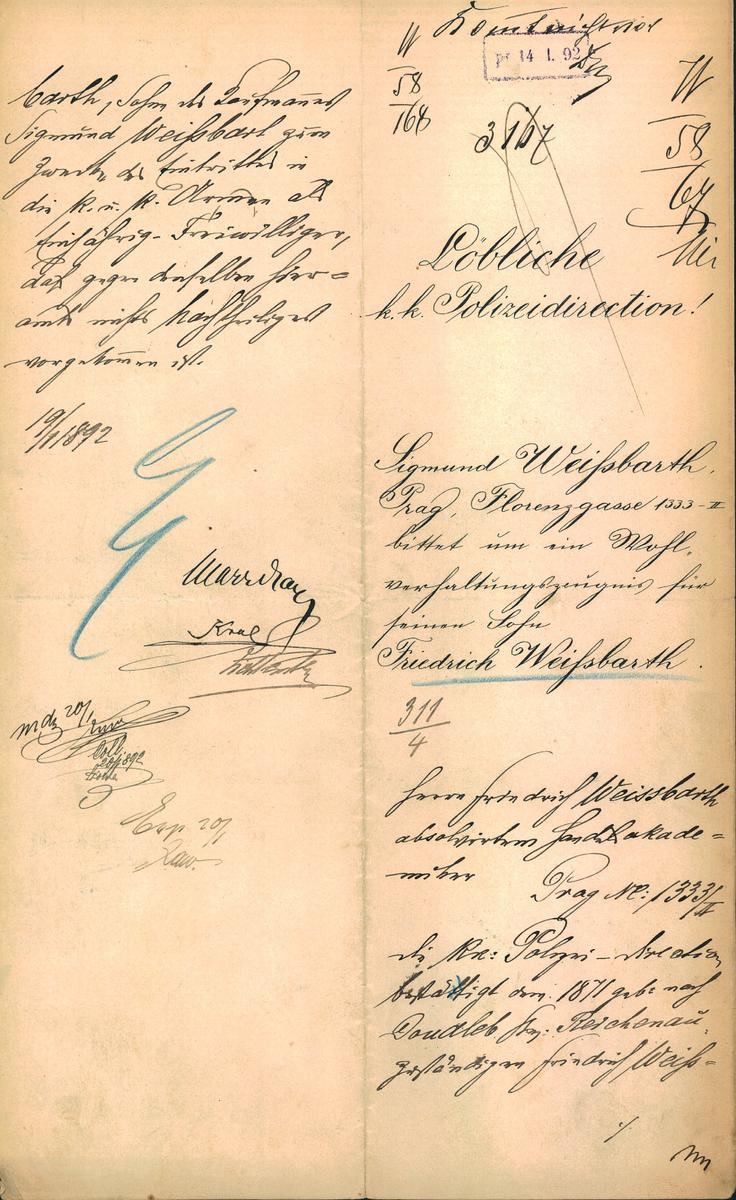 W
58
168
pr 14 1. 92
3167
W
58
67
Löbliche
k. k. Polizeidirection!
Sigmund Weißbarth,
Prag, Florenzgasse 1333-II
bittet um ein Wohl-
verhaltungszeugnis für
seinen Sohn
Friedrich Weißbarth.
311
4
Herrn Friedrich Weissbarth
absolvirtem Handelsakade=
miker
Prag No: 1333/II
die k.k: Polizei-direction
bestättigt dem 1871 geb: nach
Doudleb Bez: Reichenau
zuständigen Friedrich Weiß=
./.
barth, Sohn des Kaufmannes
Sigmund Weißbart zum
Zwecke des Eintrittes in
die k. u. k. Armee als
Einjährig-Freiwilliger,
daß gegen denselben hier=
amts nichts Nachtheiliges
vorgekommen ist.
19/1 1892
Kral
20/1
Coll
20/1 892
Exp 20/1